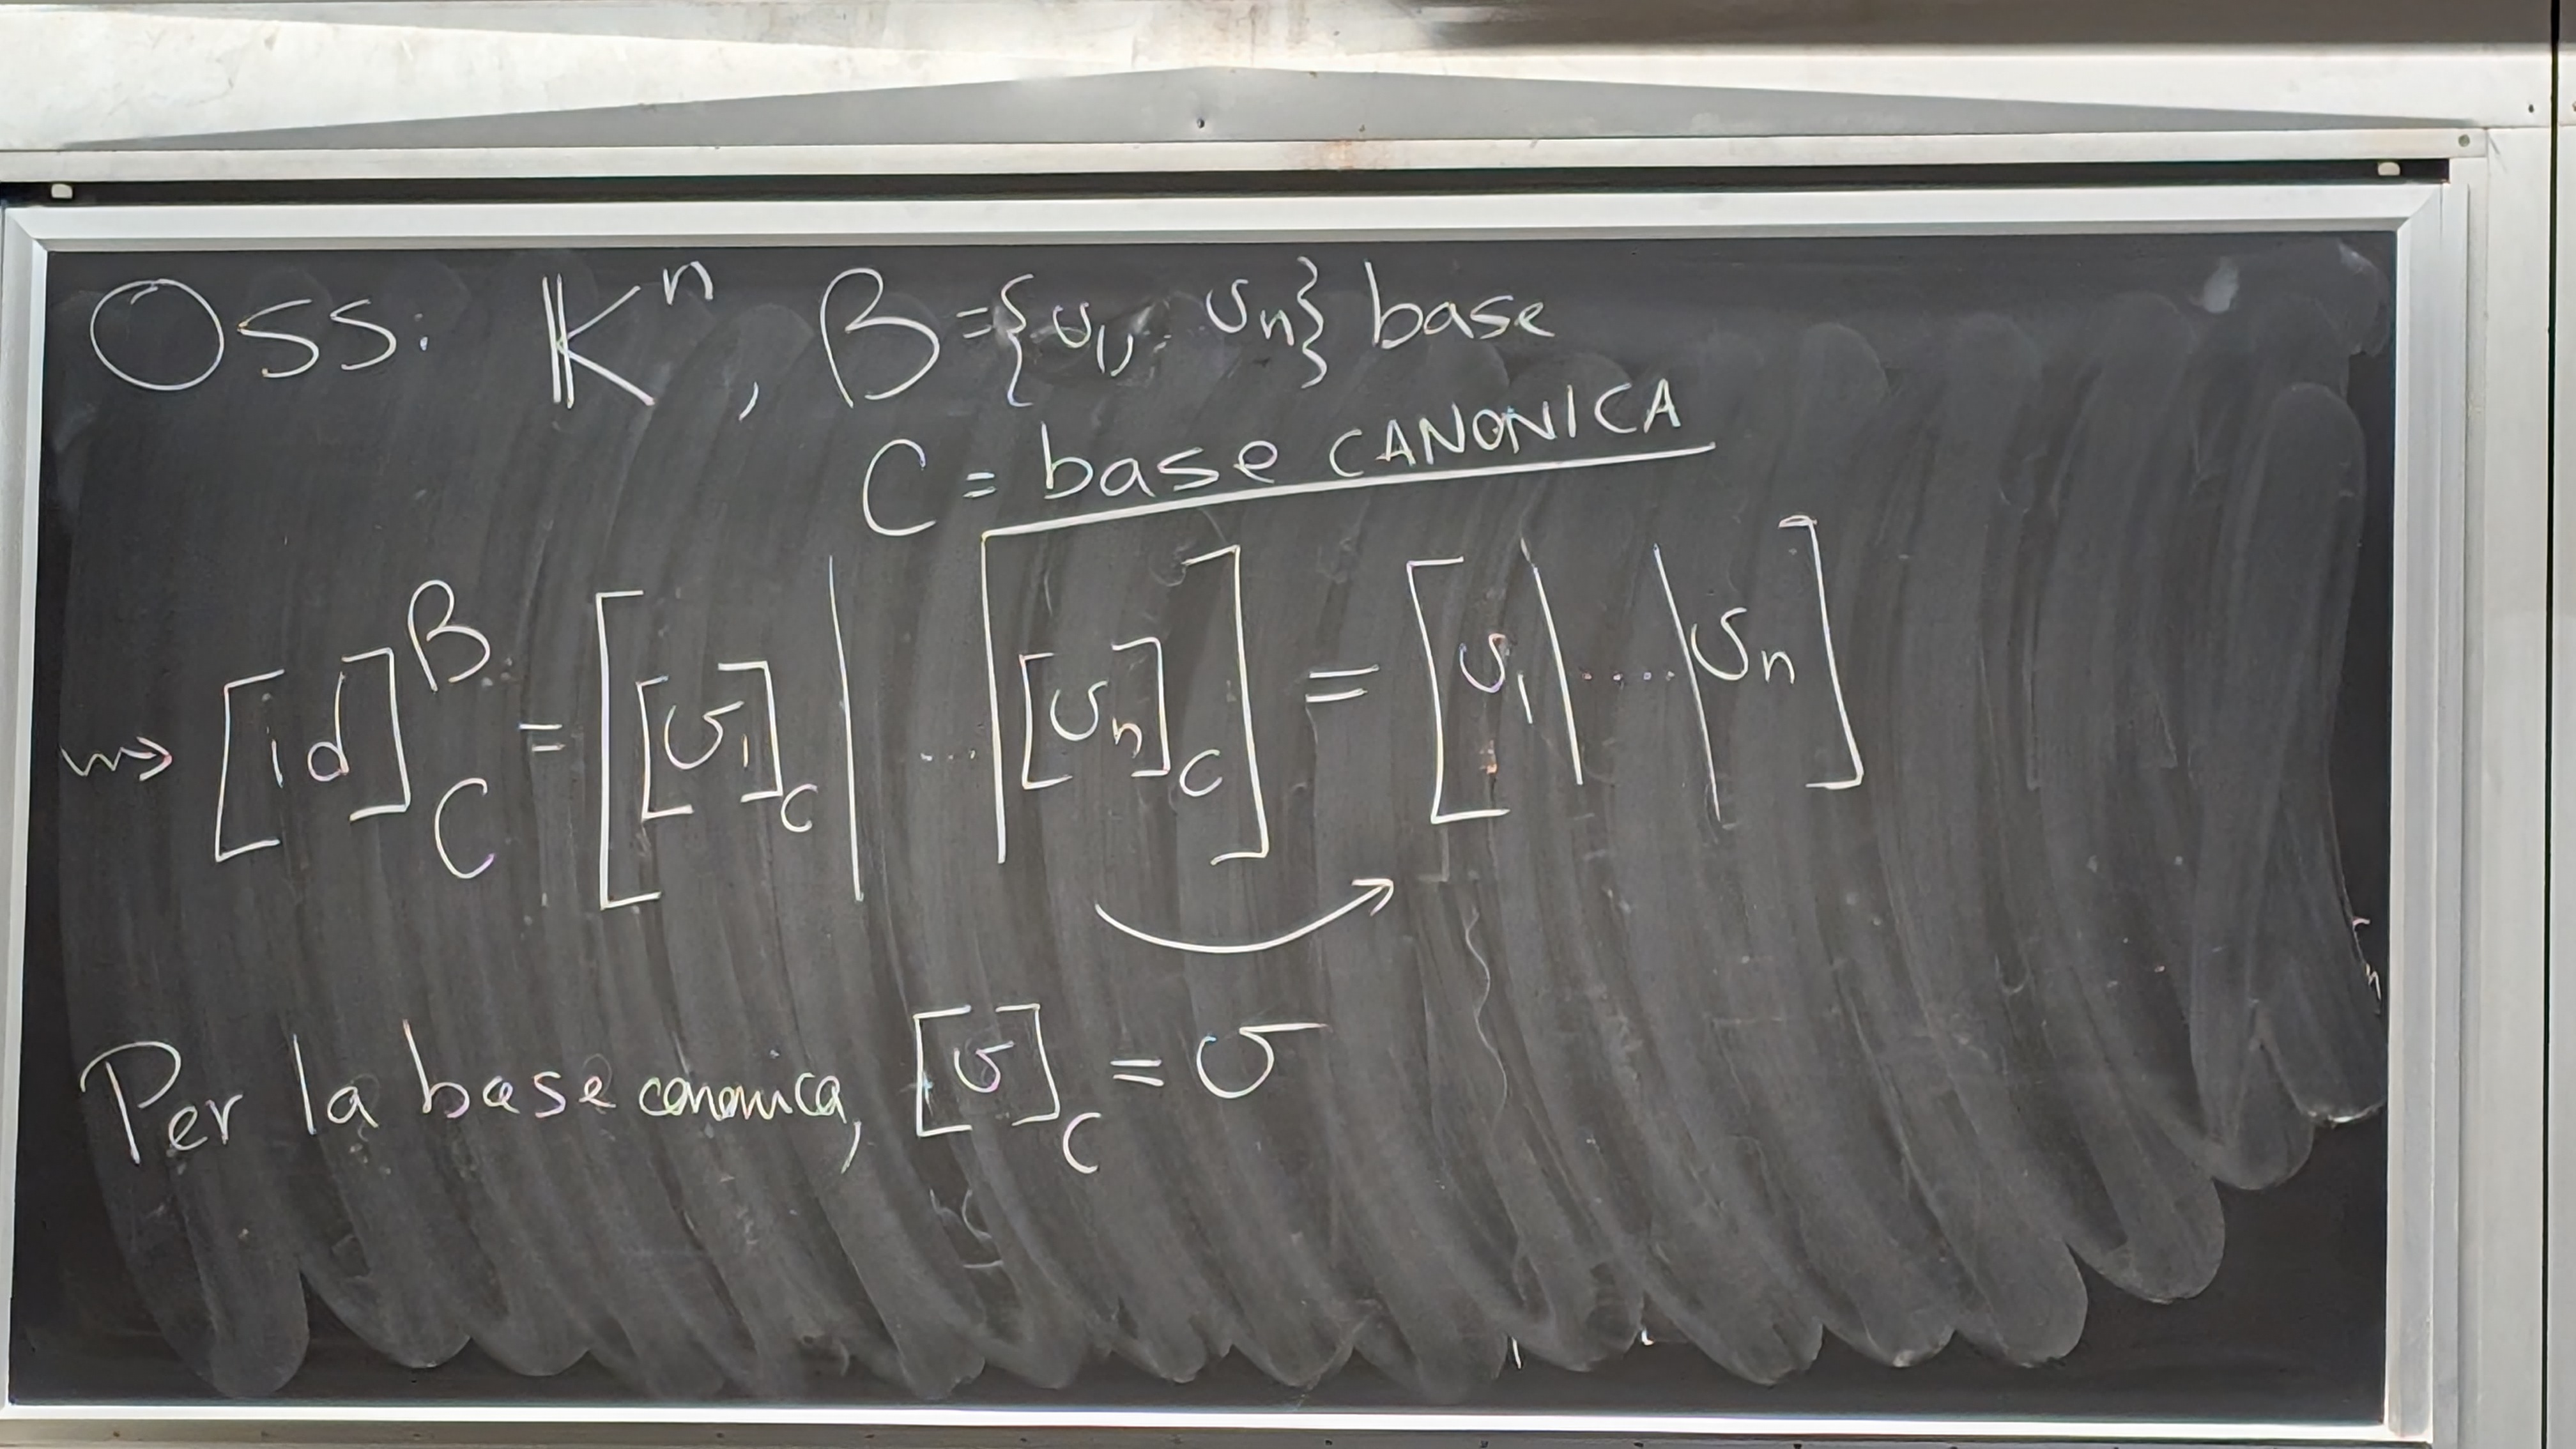 Oss: 𝕂ⁿ, B={v₁, vₙ} base
C = base CANONICA
⇝ [id]ᴮ_C = [[v₁]_C | ... | [vₙ]_C] = [v₁ | ..... | vₙ]
Per la base canonica, [v]_C = v